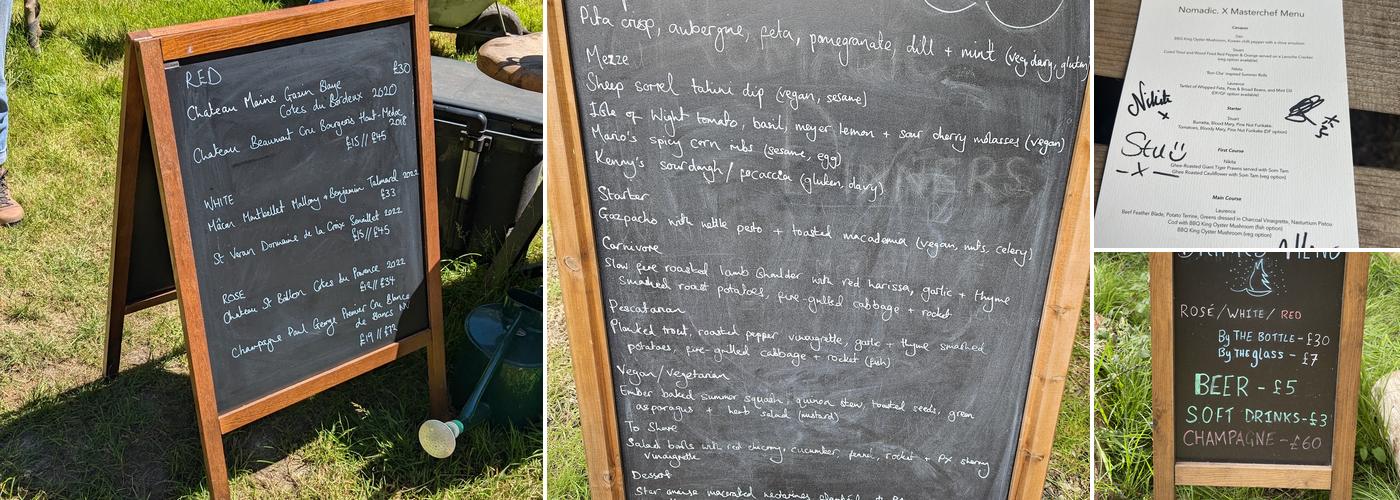 RED
£30
Chateau Maine Gazin Blaye
Cotes du Bordeux 2020
Chateau Beaumont Cru Bourgeois Haut-Medoc
2018
£15//£45
WHITE
Mâcon Montbellet Mallory + Benjamin Talmard 2022
£33
St Veran Domaine de la Croix Senaillet 2022
£15//£45
ROSE
Chateau St Baillon Cotes du Provence 2022
£12//£34
Champagne Paul George Premier Cru Blanc
de Blancs NV
£19//£72
Pita crisp, aubergine, feta, pomegranate, dill + mint (veg, dairy, gluten)
Mezze
Sheep sorrel tahini dip (vegan, sesame)
Isle of Wight tomato, basil, meyer lemon + sour cherry molasses (vegan)
Mario's spicy corn ribs (sesame, egg)
Kenny's sourdough / focaccia (gluten, dairy)
Starter
Gazpacho with nettle pesto + toasted macadamia (vegan, nuts, celery)
Carnivore
Slow fire roasted lamb shoulder with red harissa, garlic + thyme
smashed roast potatoes, fire-grilled cabbage + rocket
Pescatarian
Planked trout, roasted pepper vinaigrette, garlic + thyme smashed
potatoes, fire-grilled cabbage + rocket (fish)
Vegan/vegetarian
Ember baked summer squash, quinoa stew, toasted seeds, green
asparagus + herb salad (mustard)
To Share
Salad bowls with red chicory, cucumber, fennel, rocket + PX sherry
vinaigrette
Dessert
Star anise macerated nectarines
Nomadic. X Masterchef Menu
Canapes
Dan
BBQ King Oyster Mushroom, Korean chilli pepper with a chive emulsion
Stuart
Cured Trout and Wood Fired Red Pepper & Orange served on a Lavosh Cracker
(veg option available)
Nikita
'Bun Cha' inspired Summer Rolls
Laurence
Tartlet of Whipped Feta, Peas & Broad Beans, and Mint Oil
(DF/GF option available)
Nikita
x
Starter
Stuart
Burrata, Blood Mary, Pine Nut Furikake.
Tomatoes, Bloody Mary, Pine Nut Furikake (DF option)
Stu
x
First Course
Nikita
Ghee-Roasted Giant Tiger Prawns served with Som Tam
Ghee Roasted Cauliflower with Som Tam (veg option)
Main Course
Laurence
Beef Feather Blade, Potato Terrine, Greens dressed in Charcoal Vinaigrette, Nasturtium Pistou
Cod with BBQ King Oyster Mushroom (fish option)
BBQ King Oyster Mushroom (veg option)
DRINKS MENU
ROSÉ/WHITE/RED
By THE BOTTLE-£30
By THE glass - £7
BEER - £5
SOFT DRINKS-£3
CHAMPAGNE-£60